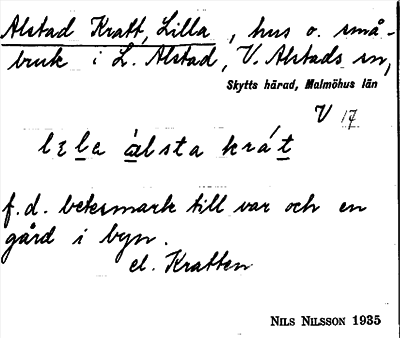 Alstad Kratt, Lilla, hus o. små-
bruk i L. Alstad, V. Alstads sn,
Skytts härad, Malmöhus län
V 17
lɛla àlsta krát
f.d. betesmark till var och en
gård i byn.
el. Kratten
NILS NILSSON 1935